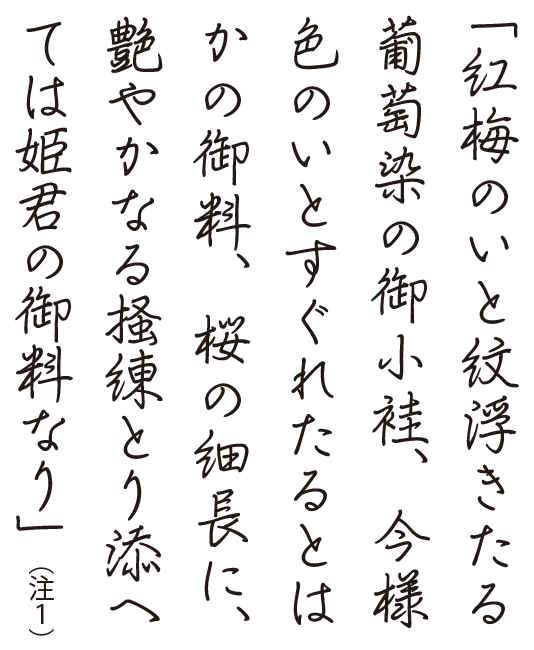 「紅梅のいと紋浮きたる
葡萄染の御小袿、今様
色のいとすぐれたるとは
かの御料、桜の細長に、
艶やかなる掻練とり添へ
ては姫君の御料なり」（注1）